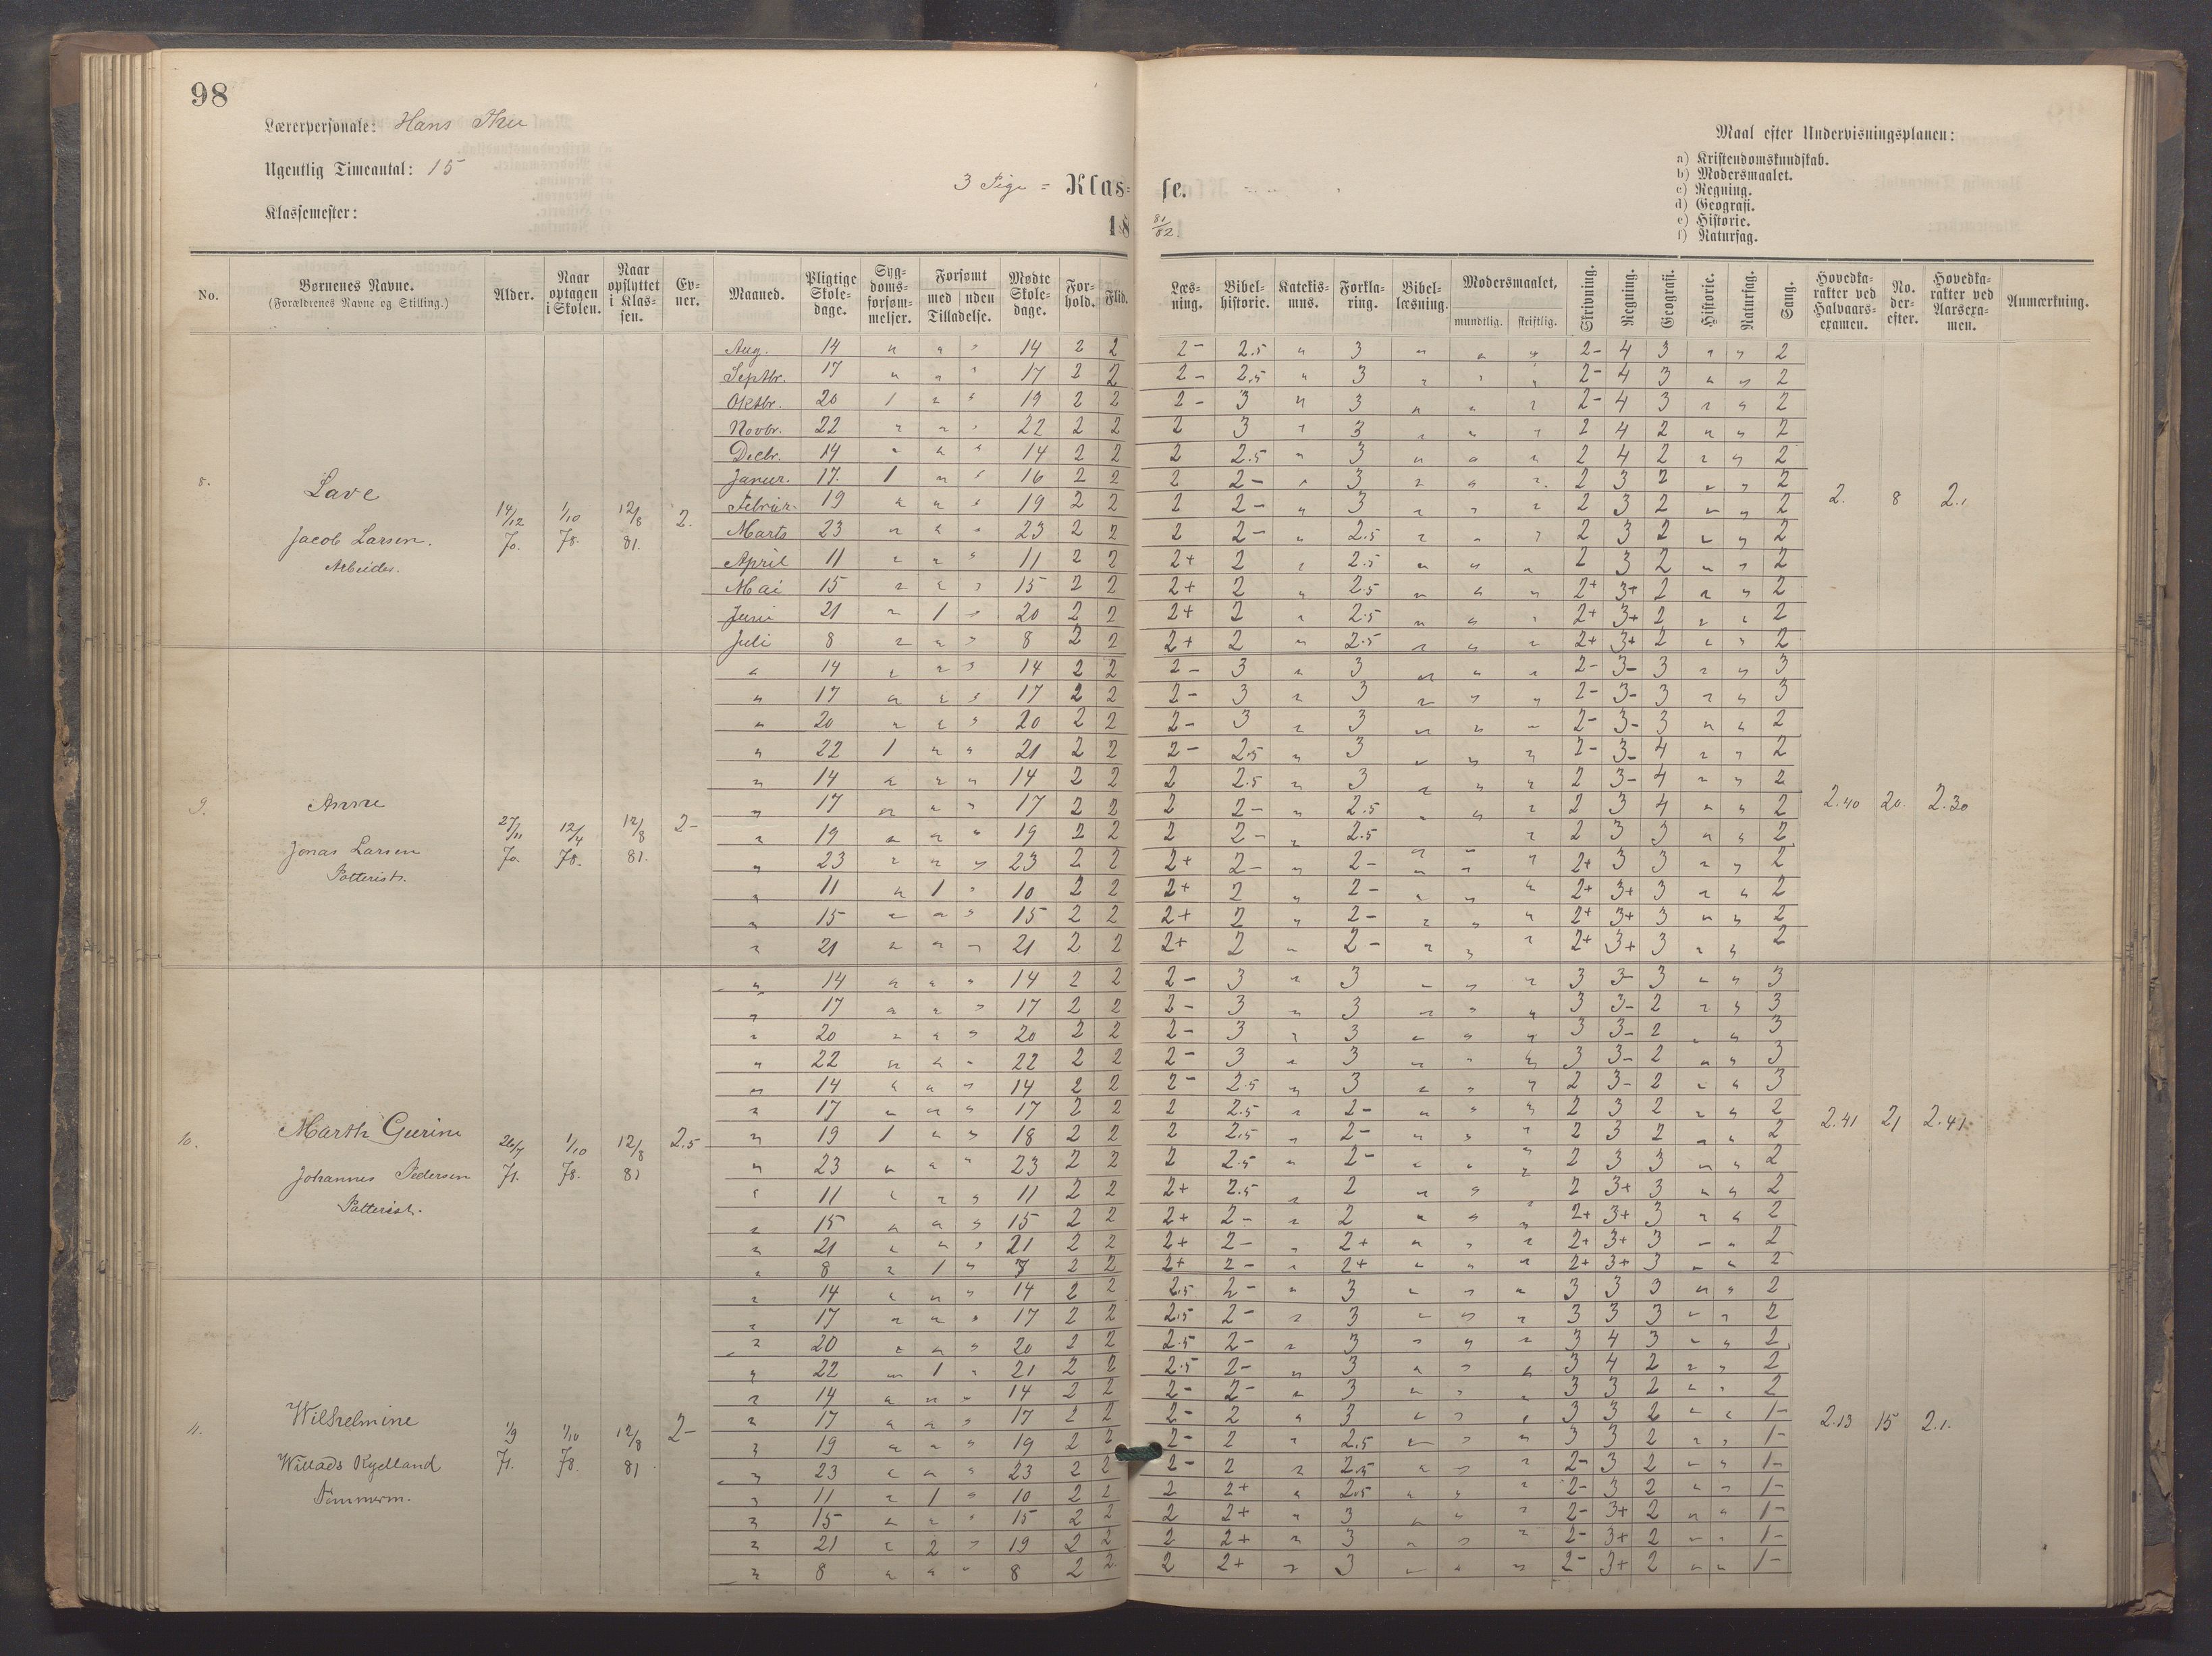 98
Lærerpersonale: Hans
Ugentlig Timeantal: 15
Klassemester:
3 Pige = Klas=
se.
18
81/82
Maal efter Undervisningsplanen:
a) Kristendomskundskab.
b) Modersmaalet.
c) Regning.
d) Geografi.
e) Historie.
f) Naturfag.
No. Børnenes Navne. (Forældrenes Navne og Stilling.) Alder. Naar optagen i Skolen. Naar opflyttet i Klassen. Evner. Maaned. Pligtige Skoledage. Sygdomsforsømmelser. Forsømt med uden Tilladelse. Mødte Skoledage. Forhold. Flid. Læsning. Bibelhistorie. Katekismus. Forklaring. Bibellæsning. Modersmaalet, mundtlig. skriftlig. Skrivning. Regning. Geografi. Historie. Naturfag. Sang. Hovedkarakter ved Halvaarsexamen. No. derefter. Hovedkarakter ved Aarsexamen. Anmærkning.
8. Lave
Jacob Larsen.
Arbeider.
14/12 70. 1/10 78. 12/8 81. 2.
Aug. 14 " " " 14 2 2 2- 2.5 " 3 " " " 2- 4 3 " " 2
Septbr. 17 " " " 17 2 2 2- 2.5 " 3 " " " 2- 4 3 " " 2
Oktbr. 20 1 " " 19 2 2 2- 3 " 3 " " " 2- 4 3 " " 2
Novbr. 22 " " " 22 2 2 2 3 " 3 " " " 2 4 2 " " 2
Decbr. 14 " " " 14 2 2 2 2.5 " 3 " " " 2 4 2 " " 2
Januar. 17. 1 " " 16 2 2 2 2- " 3 " " " 2 3 2 " " 2
Februar. 19 " " " 19 2 2 2 2- " 3 " " " 2 3 2 " " 2
Marts 23 " " " 23 2 2 2 2- " 2.5 " " " 2 3 2 " " 2
April 11 " " " 11 2 2 2+ 2 " 2.5 " " " 2 3 2 " " 2
Mai 15 " " " 15 2 2 2+ 2 " 2.5 " " " 2+ 3+ 2 " " 2
Juni 21 " 1 " 20 2 2 2+ 2 " 2.5 " " " 2+ 3+ 2 " " 2
Juli 8 " " " 8 2 2 2+ 2 " 2.5 " " " 2+ 3+ 2 " " 2
2. 8 2.1
9. Anne
Jonas Larsen
27/11 70. 12/4 78. 12/8 81. 2-
" 14 " " " 14 2 2 2- 3 " 3 " " " 2- 3- 3 " " 3
" 17 " " " 17 2 2 2- 3 " 3 " " " 2- 3- 3 " " 3
" 20 " " " 20 2 2 2- 3 " 3 " " " 2- 3- 3 " " 2
" 22 1 " " 21 2 2 2- 2.5 " 3 " " " 2- 3- 4 " " 2
" 14 " " " 14 2 2 2 2.5 " 3 " " " 2 3- 4 " " 2
" 17 " " " 17 2 2 2 2- " 2.5 " " " 2 3 4 " " 2
" 19 " " " 19 2 2 2 2- " 2.5 " 2 3 3 " " 2
" 23 " " " 23 2 2 2+ 2- " 2- " " " 2+ 3 3 " " 2
" 11 " 1 " 10 2 2 2+ 2 " 2- " " " 2+ 3+ 3 " " 2
" 15 " " " 15 2 2 2+ 2 " 2- " " " 2+ 3+ 3 " " 2
" 21 " " " 21 2 2 2+ 2 " 2- " " " 2+ 3+ 3 " " 2
2.40 20. 2.30
10. Marth Gurine
Johannes Pedersen
26/7 71. 1/10 78. 12/8 81 2.5
" 14 " " " 14 2 2 2- 3 " 3 " " " 3 3- 3 " " 3
" 17 " " " 17 2 2 2- 3 " 3 " " " 3 3- 2 " " 3
" 20 " " " 20 2 2 2- 3 " 3 " " " 3 3- 2 " " 3
" 22 " " " 22 2 2 2- 3 " 3 " " " 3 3- 2 " " 3
" 14 " " " 14 2 2 2- 2.5 " 3 " " " 2 3- 2 " " 3
" 17 " " " 17 2 2 2 2.5 " 2- " " " 2 3 2 " " 2
" 19 1 " " 18 2 2 2 2.5 " 2- " " " 2 3 2 " " 2
" 23 " " " 23 2 2 2 2.5 " 2- " " " 2 3 3 " " 2
" 11 " " " 11 2 2 2+ 2.5 " 2 " " " 2 3+ 3 " " 2
" 15 " " " 15 2 2 2+ 2- " 2 " " " 2+ 3+ 3 " " 2
" 21 " " " 21 2 2 2+ 2- " 2+ " " " 2+ 3+ 3 " " 2
" 8 " 1 " 7 2 2 2+ 2- " 2+ " " " 2+ 3+ 3 " " 2
2.41 21 2.41
11. Wilhelmine
Willads Kydland
Tømmerm.
1/9 71. 1/10 78. 12/8 81 2-
" 14 " " " 14 2 2 2.5 2- " 3 " " " 3 3 3 " " 2
" 17 " " " 17 2 2 2.5 2- " 3 " " " 3 3 3 " " 2
" 20 " " " 20 2 2 2.5 2- " 3 " " " 3 4 3 " " 2
" 22 " 1 " 21 2 2 2.5 2- " 3 " " " 3 4 2 " " 2
" 14 " " " 14 2 2 2- 2- " 3 " " " 3 3 2 " " 2
" 17 " " " 17 2 2 2- 2 " 3 " " " 3 3 2 " " 1-
" 19 " " " 19 2 2 2- 2 " 2.5 " " " 3 3 2 " " 1-
" 23 " " " 23 2 2 2- 2 " 2.5 " " " 2- 3 2 " " 1-
" 11 " 1 " 10 2 2 2 2+ " 2.5 " " " 2- 3 2 " " 1-
" 15 " " " 15 2 2 2 2+ " 3 " " " 2- 3+ 2 " " 1-
" 21 " 2 " 19 2 2 2 2+ " 3 " " " 2- 3+ 2 " " 1-
" 8 " " " 8 2 2 2 2+ " 3 " " " 2- 3+ 2 " " 1-
2.13 15 2.1.